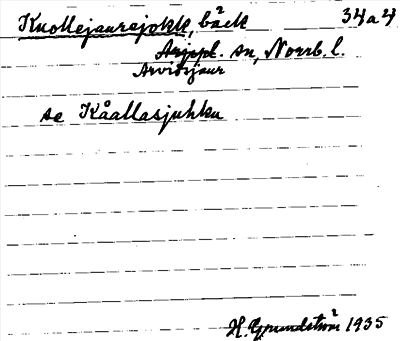 Kuollejaurejokk, bäck 34a4
Arjepl. sn, Norrb. l.
Arvidsjaur
se Kåallasjuhka
H. Grundström 1935